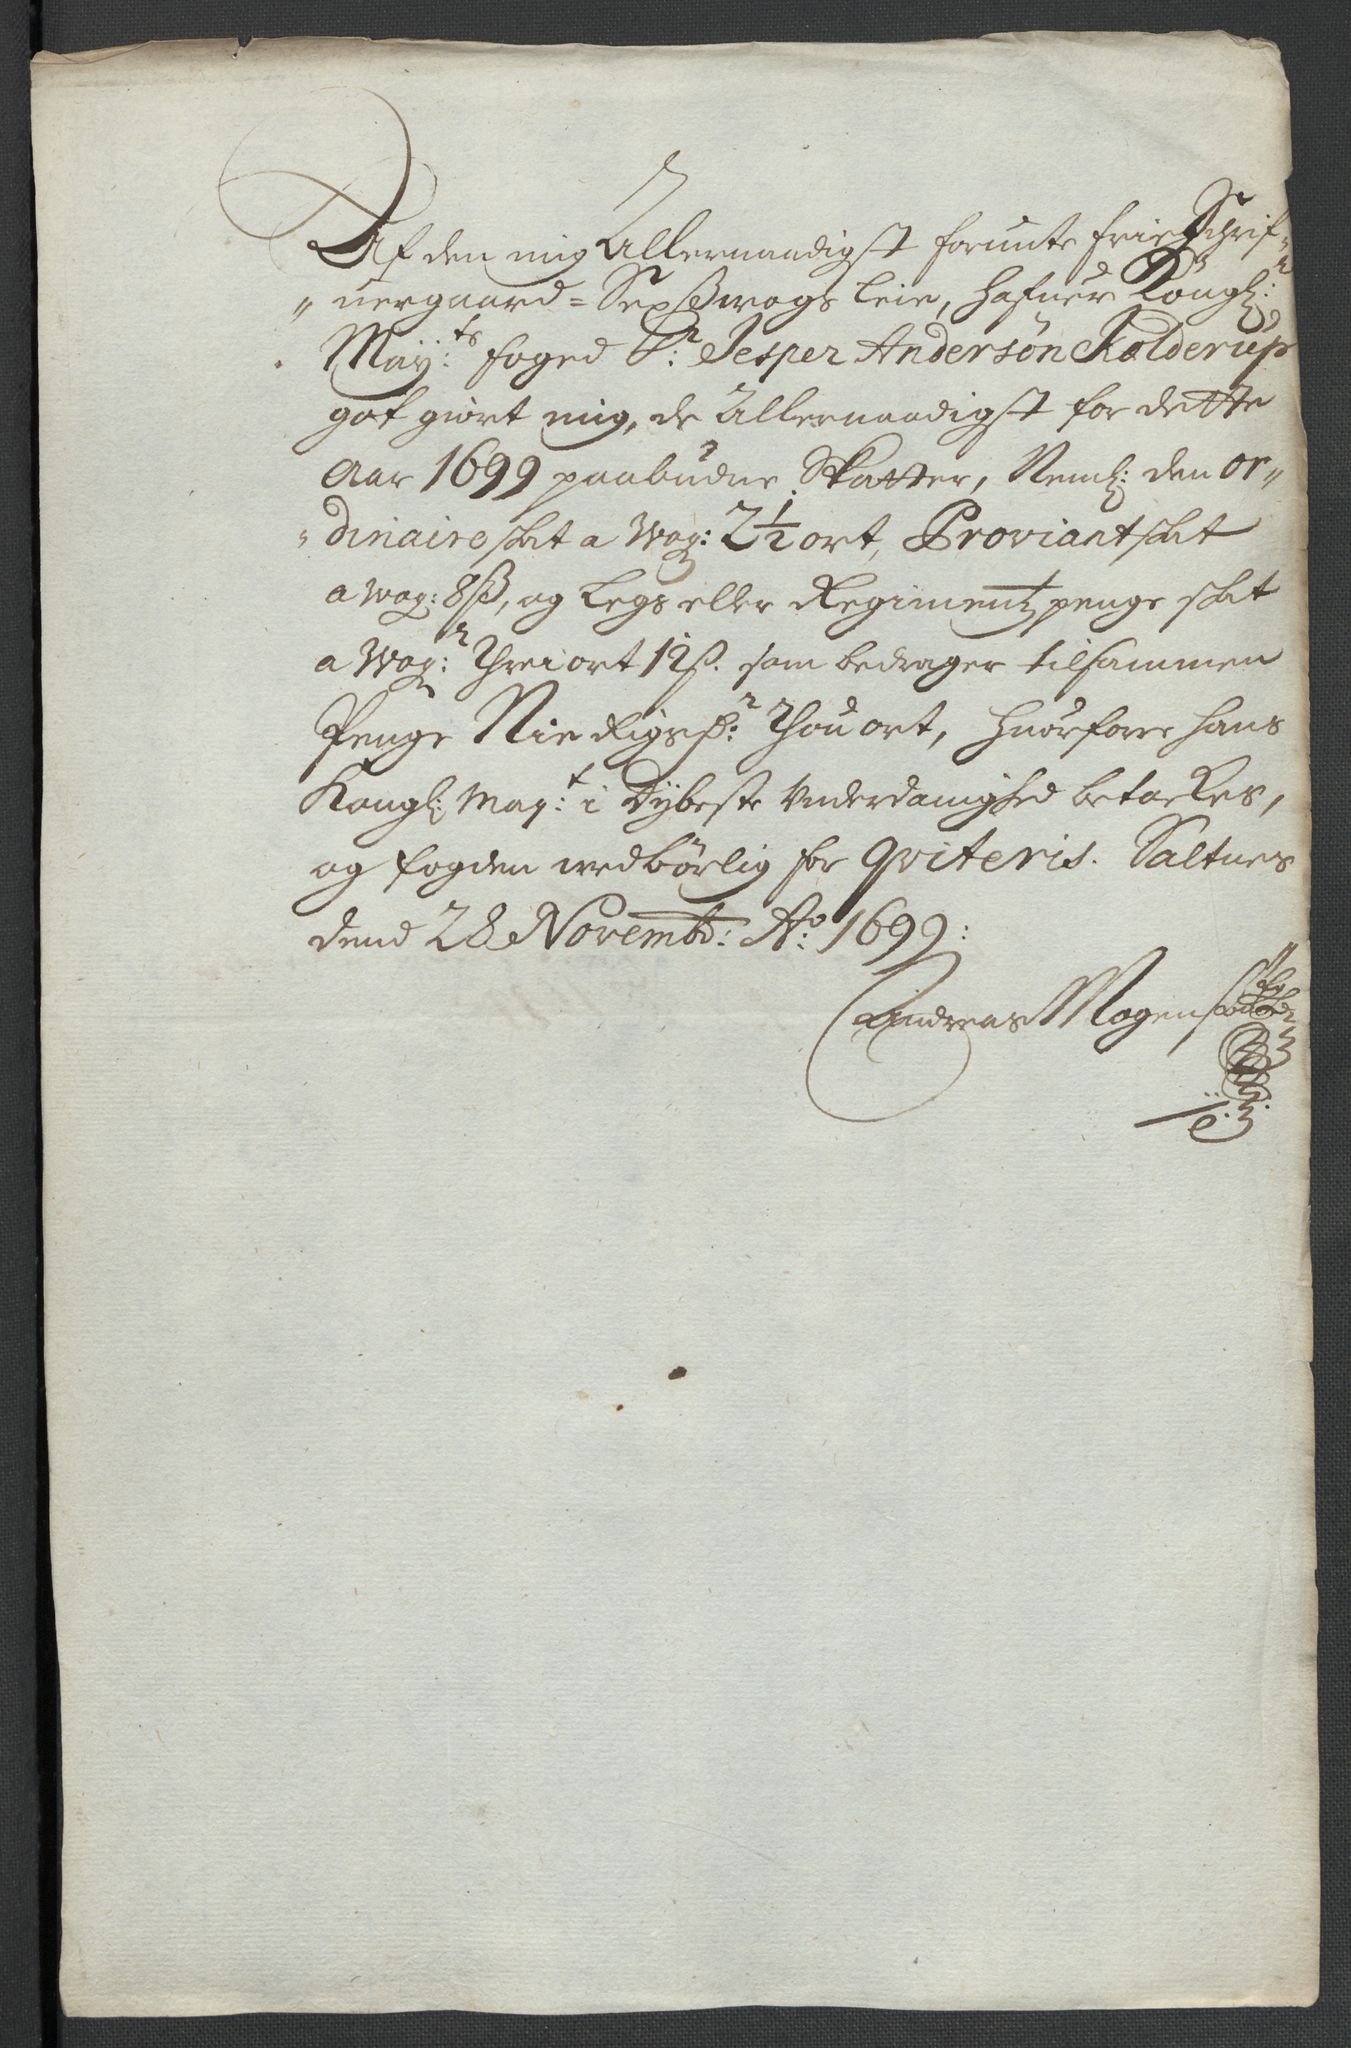 Af den mig Allernaadigst forunte frie Schrif-
uergaard = Sex Wogs leie, hafuer Kongl:
May:ts foged Sr: Jesper Andersøn Kolderup
got giort mig, de Allernaadigst for dette
Aar 1699 paabudne Skatter, Neml: den or-
dinaire skat a Wog: 2½ ort, Proviant skat
a wog: 8 ß, og Legs eller Regimentz penge skat
a Wog: Threi ort 12 ß. som bedrager tilsammen
Penge Nie Rigsdr: Thou ort, huorfore hans
Kongl: May:t i Dybeste Vnderdanighed betackes,
og fogden wedbörlig for qviteris. Saltnes
dend 28 Novembr: Ao: 1699:
Andreas Mogens